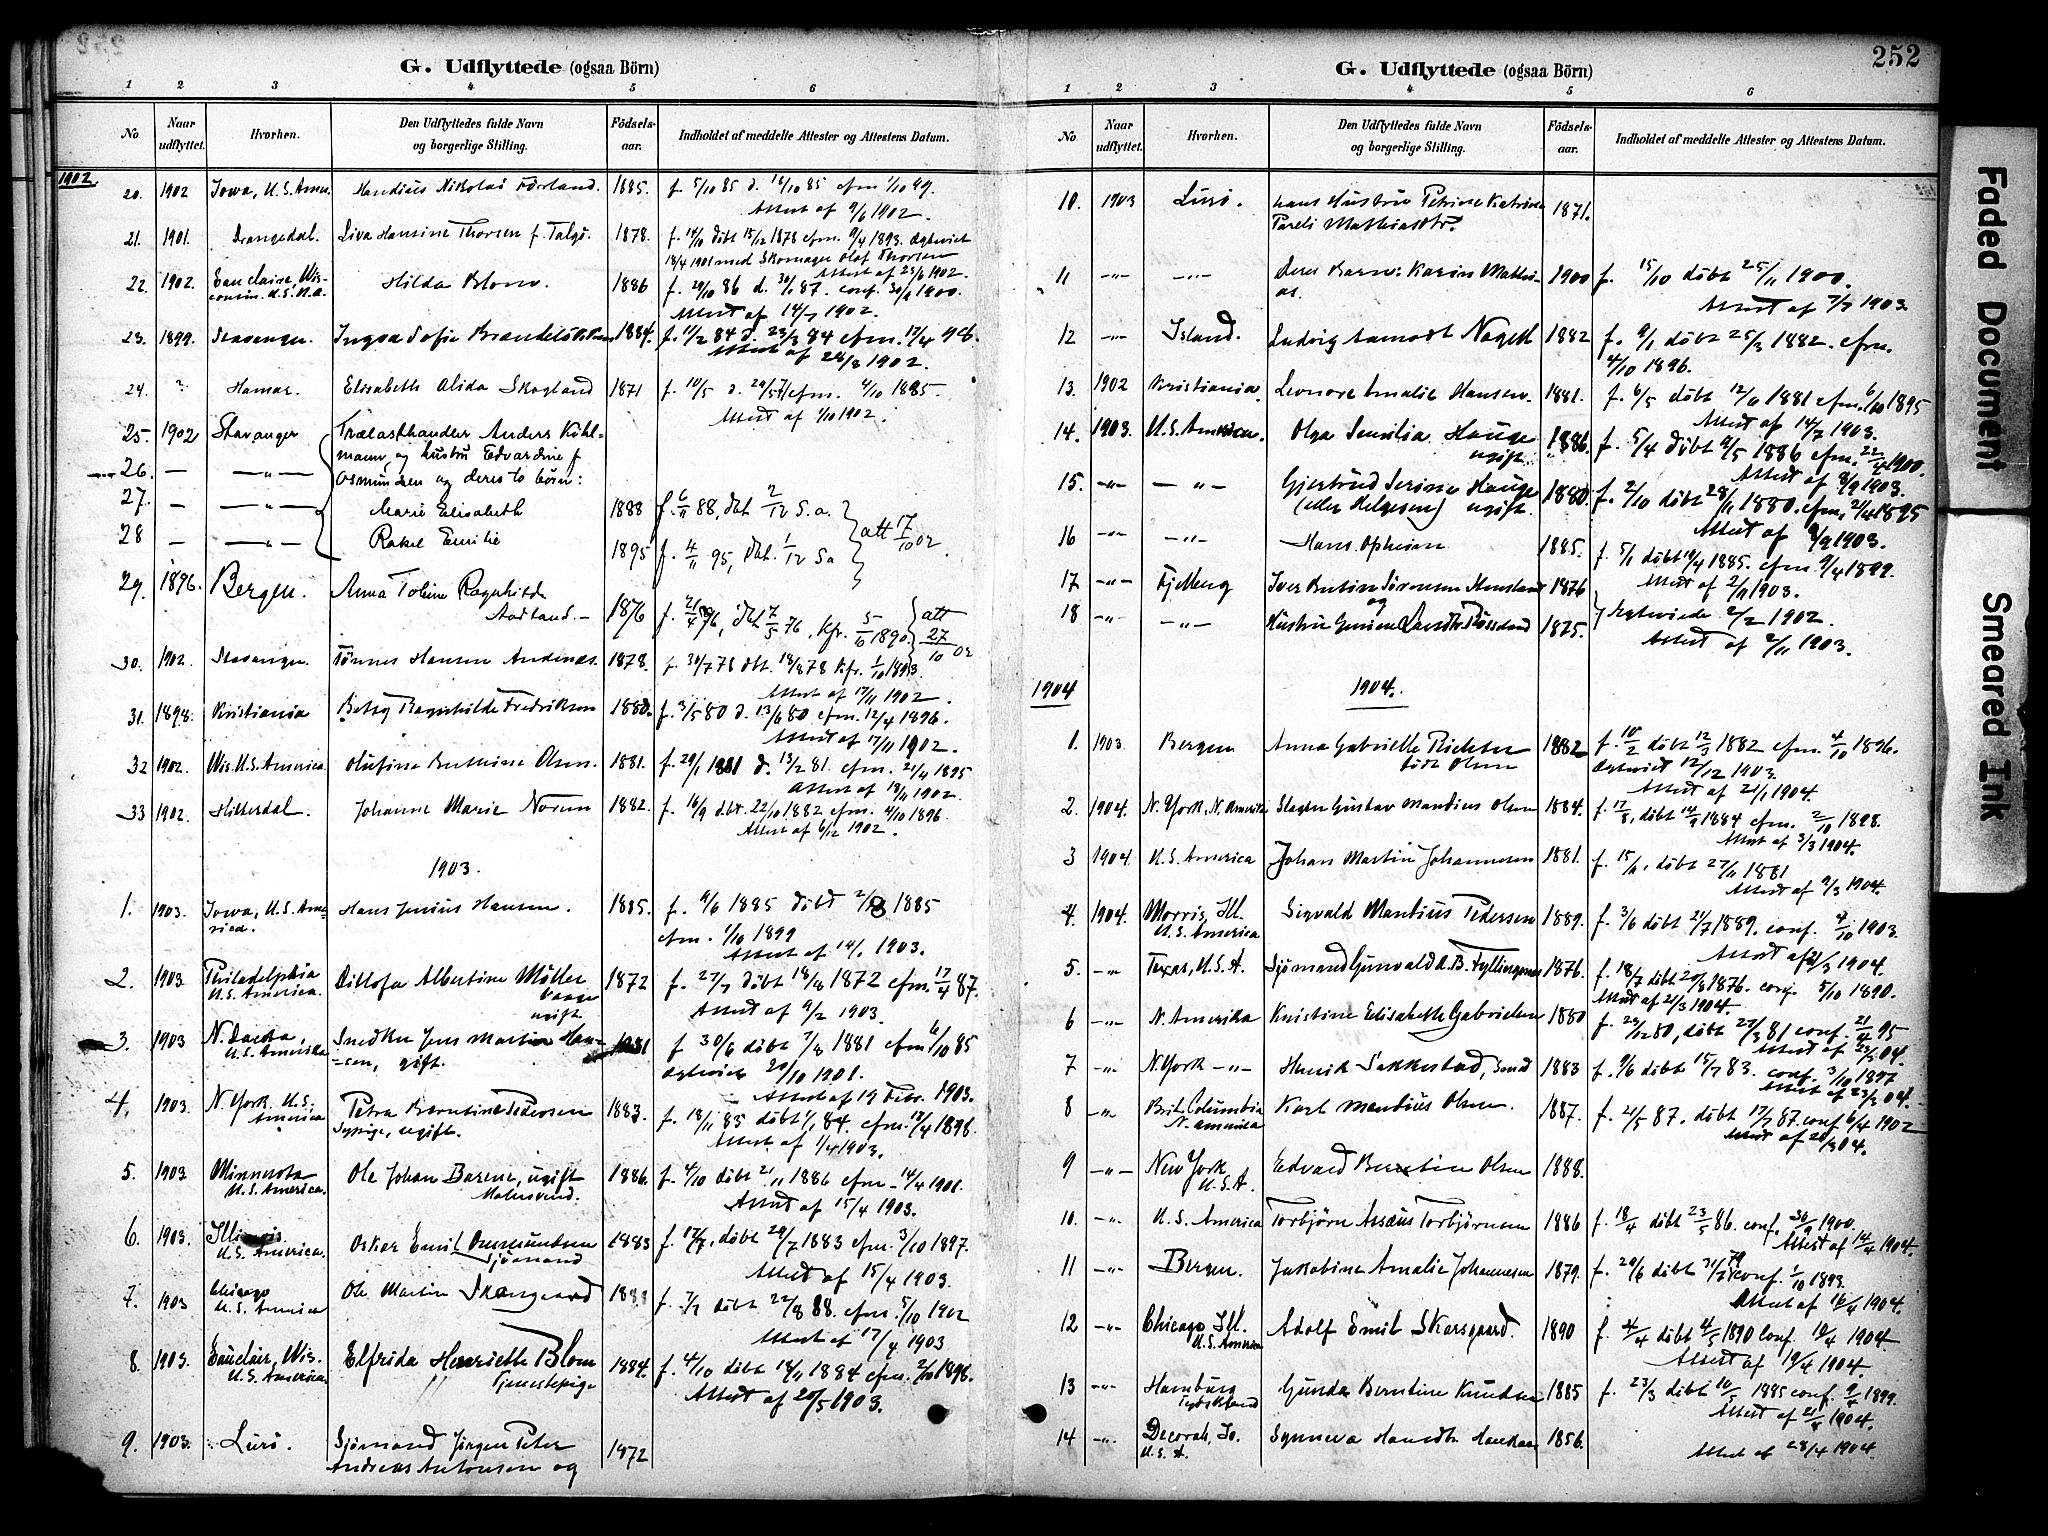 252
G. Udflyttede (ogsaa Börn)
1 2 3 4 5 6
No
Naar udflyttet.
Hvorhen.
Den Udflyttedes fulde Navn og borgerlige Stilling.
Födsels-aar.
Indholdet af meddelte Attester og Attestens Datum.
1902
20. 1902 Iowa, U.S. Amer. Mandius Nikolai 1885. f. 5/10 85 d. 18/10 85 cfm 1/10 99.
Attest af 9/6 1902.
21. 1901. Drangedal. Liva Hansine Thorsen f. Talgö. 1878. f. 14/10 döbt 15/12 1878 cfm. 9/4 1893. Egteviet
18/4 1901 med Skomager Olaf Thorsen
Attest af 23/6 1902.
22. 1902. Eau claire, Wis-consin. U.S. N.A. Hilda Blom 1886 f. 29/10 86 d. 30/1 87. conf. 30/9 1900.
Attest af 14/7 1902.
23. 1899. Stavanger. Ingva Sofie 1884. f. 11/2 84 d. 23/3 84 cfm. 17/4 98.
Attest af 28/8 1902.
24. Hamar. Elisabeth Alida Skogland 1871 f. 10/5 d. 29/5 71 cfm. 4/10 1885.
Attest af 1/10 1902.
25. 1902 Stavanger Trælasthandler Anders Kihl-
26. — —„— mann og hustru Edvardine f
Osmundsen og deres to börn:
27. — —„— Marie Elisabeth 1888 f. 6/11 88, dbt 2/12 S.a.
28 — —„— Rakel Emilie 1895 f. 4/11 95, dbt. 1/12 Sa
att 17/10 02.
29. 1896. Bergen. Anna Toline Ragnhilde
Aadland.— 1876 f. 21/4 76, dbt 7/5 76, kfr. 5/10 1890 att 27/10 02
30. 1902. Stavanger. Tönnes Hansen Andenæs. 1878. f. 30/7 78 dbt. 18/8 78 kfr. 1/10 1893
Attest af 17/11 1902.
31. 1898. Kristiania Betsy Ragnhilde Fredriksen 1880. f. 3/5 80 d. 13/6 80 cfm. 12/4 1896.
Attest af 17/11 1902.
32 1902. Wis. U.S. America. Olufine Bertine Olsen. 1881. f. 29/1 1881 d. 13/2 81. cfm. 21/4 1895
Attest af 18/11 1902.
33 1902. Hitterdal. Johanne Marie Norum 1882. f. 16/9 dbt. 22/10 1882 cfm. 4/10 1896
Attest af 6/12 1902.
1903.
1. 1903. Iowa, U.S. Ame-rica. Hans Junius Hansen. 1885. f. 9/6 1885 döbt 2/8 1885
cfm. 1/10 1899
Attest af 14/1 1903.
2. 1903 Philadelphia U.S. America. Ditlofa Albertine Möller
ugift. 1872 f. 27/7 döbt 18/8 1872 cfm. 17/4 87.
Attest af 9/2 1903.
3. 1903 N. Dacota, U.S. Amerika Snedker Jens Martin Han-
-sen, gift. 1881 f 30/6 döbt 7/8 1881 cfm 6/10 85
Egteviet 20/10 1901.
Attest af 19 Febr. 1903.
4. 1903. N. York. U.S. America Petra Berntine Pedersen
Sypige, ugift. 1883. f. 18/11 85 döbt 1/1 84. cfm. 17/4 1898.
Attest af 1/4 1903.
5. 1903 Minnesota U.S. America. Ole Johan Barene, ugift
Malersvend. 1886. f. 4/10 döbt 21/11 1886 cfm – 14/4 1901.
Attest af 15/4 1903.
6. 1903. Illinois U.S. America. Oskar Emil Osmundsen
Sjömand 1883 f. 17/7, döbt 29/7 1883 cfm. 3/10 1897.
Attest af 15/4 1903.
7. 1903 Chicago U.S. America Ole Martin Skarsgaard 1888 f. 7/7 döbt 22/8 88. cfm. 5/10 1902
Attest af 17/4 1903
8. 1903. Eauclair, Wis. U.S. America. Elfrida Henriette Blom
Tjenestepige 1884. f. 4/10 döbt 18/11 1884 cfm. 2/10 1898.
Attest af 20/5 1903.
9. 1903. Lurö. Sjömand Jörgen Peter
Andreas Antonsen og 1872
G. Udflyttede (ogsaa Börn)
1 2 3 4 5 6
No
Naar udflyttet.
Hvorhen.
Den Udflyttedes fulde Navn og borgerlige Stilling.
Födsels-aar.
Indholdet af meddelte Attester og Attestens Datum.
10. 1903 Lurö. hans Hustru Petrine Katrine
Pareli Mathiasdtr. 1871.
11 —„— —„— Deres Barn: Karin Mathi-
as. 1900 f. 15/10 döbt 25/11 1900.
Attest af 7/7 1903.
12 —„— Island. Ludvig 1882 f. 9/1 döbt 25/3 1882. cfm.
4/10 1896.
13. 1902 Kristiania. Leonore Amalie Hansen. 1881. f. 6/5 döbt 12/6 1881 cfm. 6/10 1895
Attest af 14/7 1903.
14. 1903. U.S. America. Olga Hauge
ugift. 1886. f. 5/4 döbt 9/5 1886 cfm. 22/4 1900.
Attest af 8/9 1903.
15. —„— —„— Gjertrud Serine Hauge
(eller Helgesen) ugift. 1880. f. 2/10 döbt 28/11 1880. cfm. 21/4 1895
Attest af 8/9 1903.
16 —„— Hans Opheim 1885. f. 5/1 döbt 19/4 1885. cfm. 9/4 1899.
Attest af 2/11 1903.
17 —„— Fjelberg Iver Bertin Sörensen 1876
og
18 —„— —„— Hustru 1875. Egteviede 2/2 1902.
Attest af 2/11 1903.
1904
1904.
1. 1903. Bergen Anna Gabrielle Richter
född Olsen 1882 f. 10/2 döbt 12/3 1882 cfm. 4/10 1896.
Egteviet 12/12 1903.
Attest af 21/1 1904.
2. 1904. N. York, N. Amerika Gustav Mandius Olsen 1884. f. 17/8, döbt 14/9 1884 cfm. 2/10 1898.
Attest af 3/3 1904.
3 1904. U.S. America Johan Martin Johannesen 1881. f. 15/1, döbt 27/11 1881
Attest af 9/3 1904.
4. 1904. Morris, Ill. U.S. America Sigvald Mandius Pedersen 1889. f. 3/6 döbt 21/7 1889. conf. 4/10 1903.
Attest af 21/3 1904.
5. —„— Texas, U.S.A. Sjömand Gunvald A. B. Fyllingsnes 1876. f. 18/7 döbt 20/8 1876. conf. 5/10 1890.
Attest af 21/3 1904.
6 —„— N. Amerika Kristine Elisabeth Gabrielsen 1880 f. 29/12 80, döbt 27/3 81 conf. 21/4 95
Attest af 23/3 04.
7 —„— N. York —„— Henrik Sakkestad, Smed 1883 f. 9/6 döbt 15/7 83. conf. 3/10 1897
Attest af 23/3 04.
8 —„— Brit. Columbia N. America Karl Mandius Olsen. 1887. f. 21/5 87. döbt 17/7 87. conf 6/4 1902
Attest af 29/3 04.
9 —„— New York U.S.A. Edvard Berntin Olsen 1888.
10. —„— U.S. America Torbjörn Assæus Torbjörnsen 1886 f. 18/4 döbt 23/5 86. conf. 30/9 1900.
Attest af 14/4 1904.
11 —„— Bergen. Jakobine Amalie Johannesen 1879. f. 29/6 döbt 31/8 79 conf. 1/10 1893.
Attest af 16/4 1904.
12 —„— Chicago Ill. U.S. America Adolf Emil Skarsgaard. 1890 f. 4/4 döbt 4/5 1890 conf. 10/4 1904
Attest af 19/4 1904.
13 —„— Hamburg Tydskland Gunda Berntine Knudsen 1885 f. 23/3 döbt 10/5 1885 conf. 9/4 1899.
Attest af 21/4 1904.
14 —„— Decorah, Io. U.S.A. Synneva 1856. Attest af 28/4 1904
Faded Document
Smeared Ink